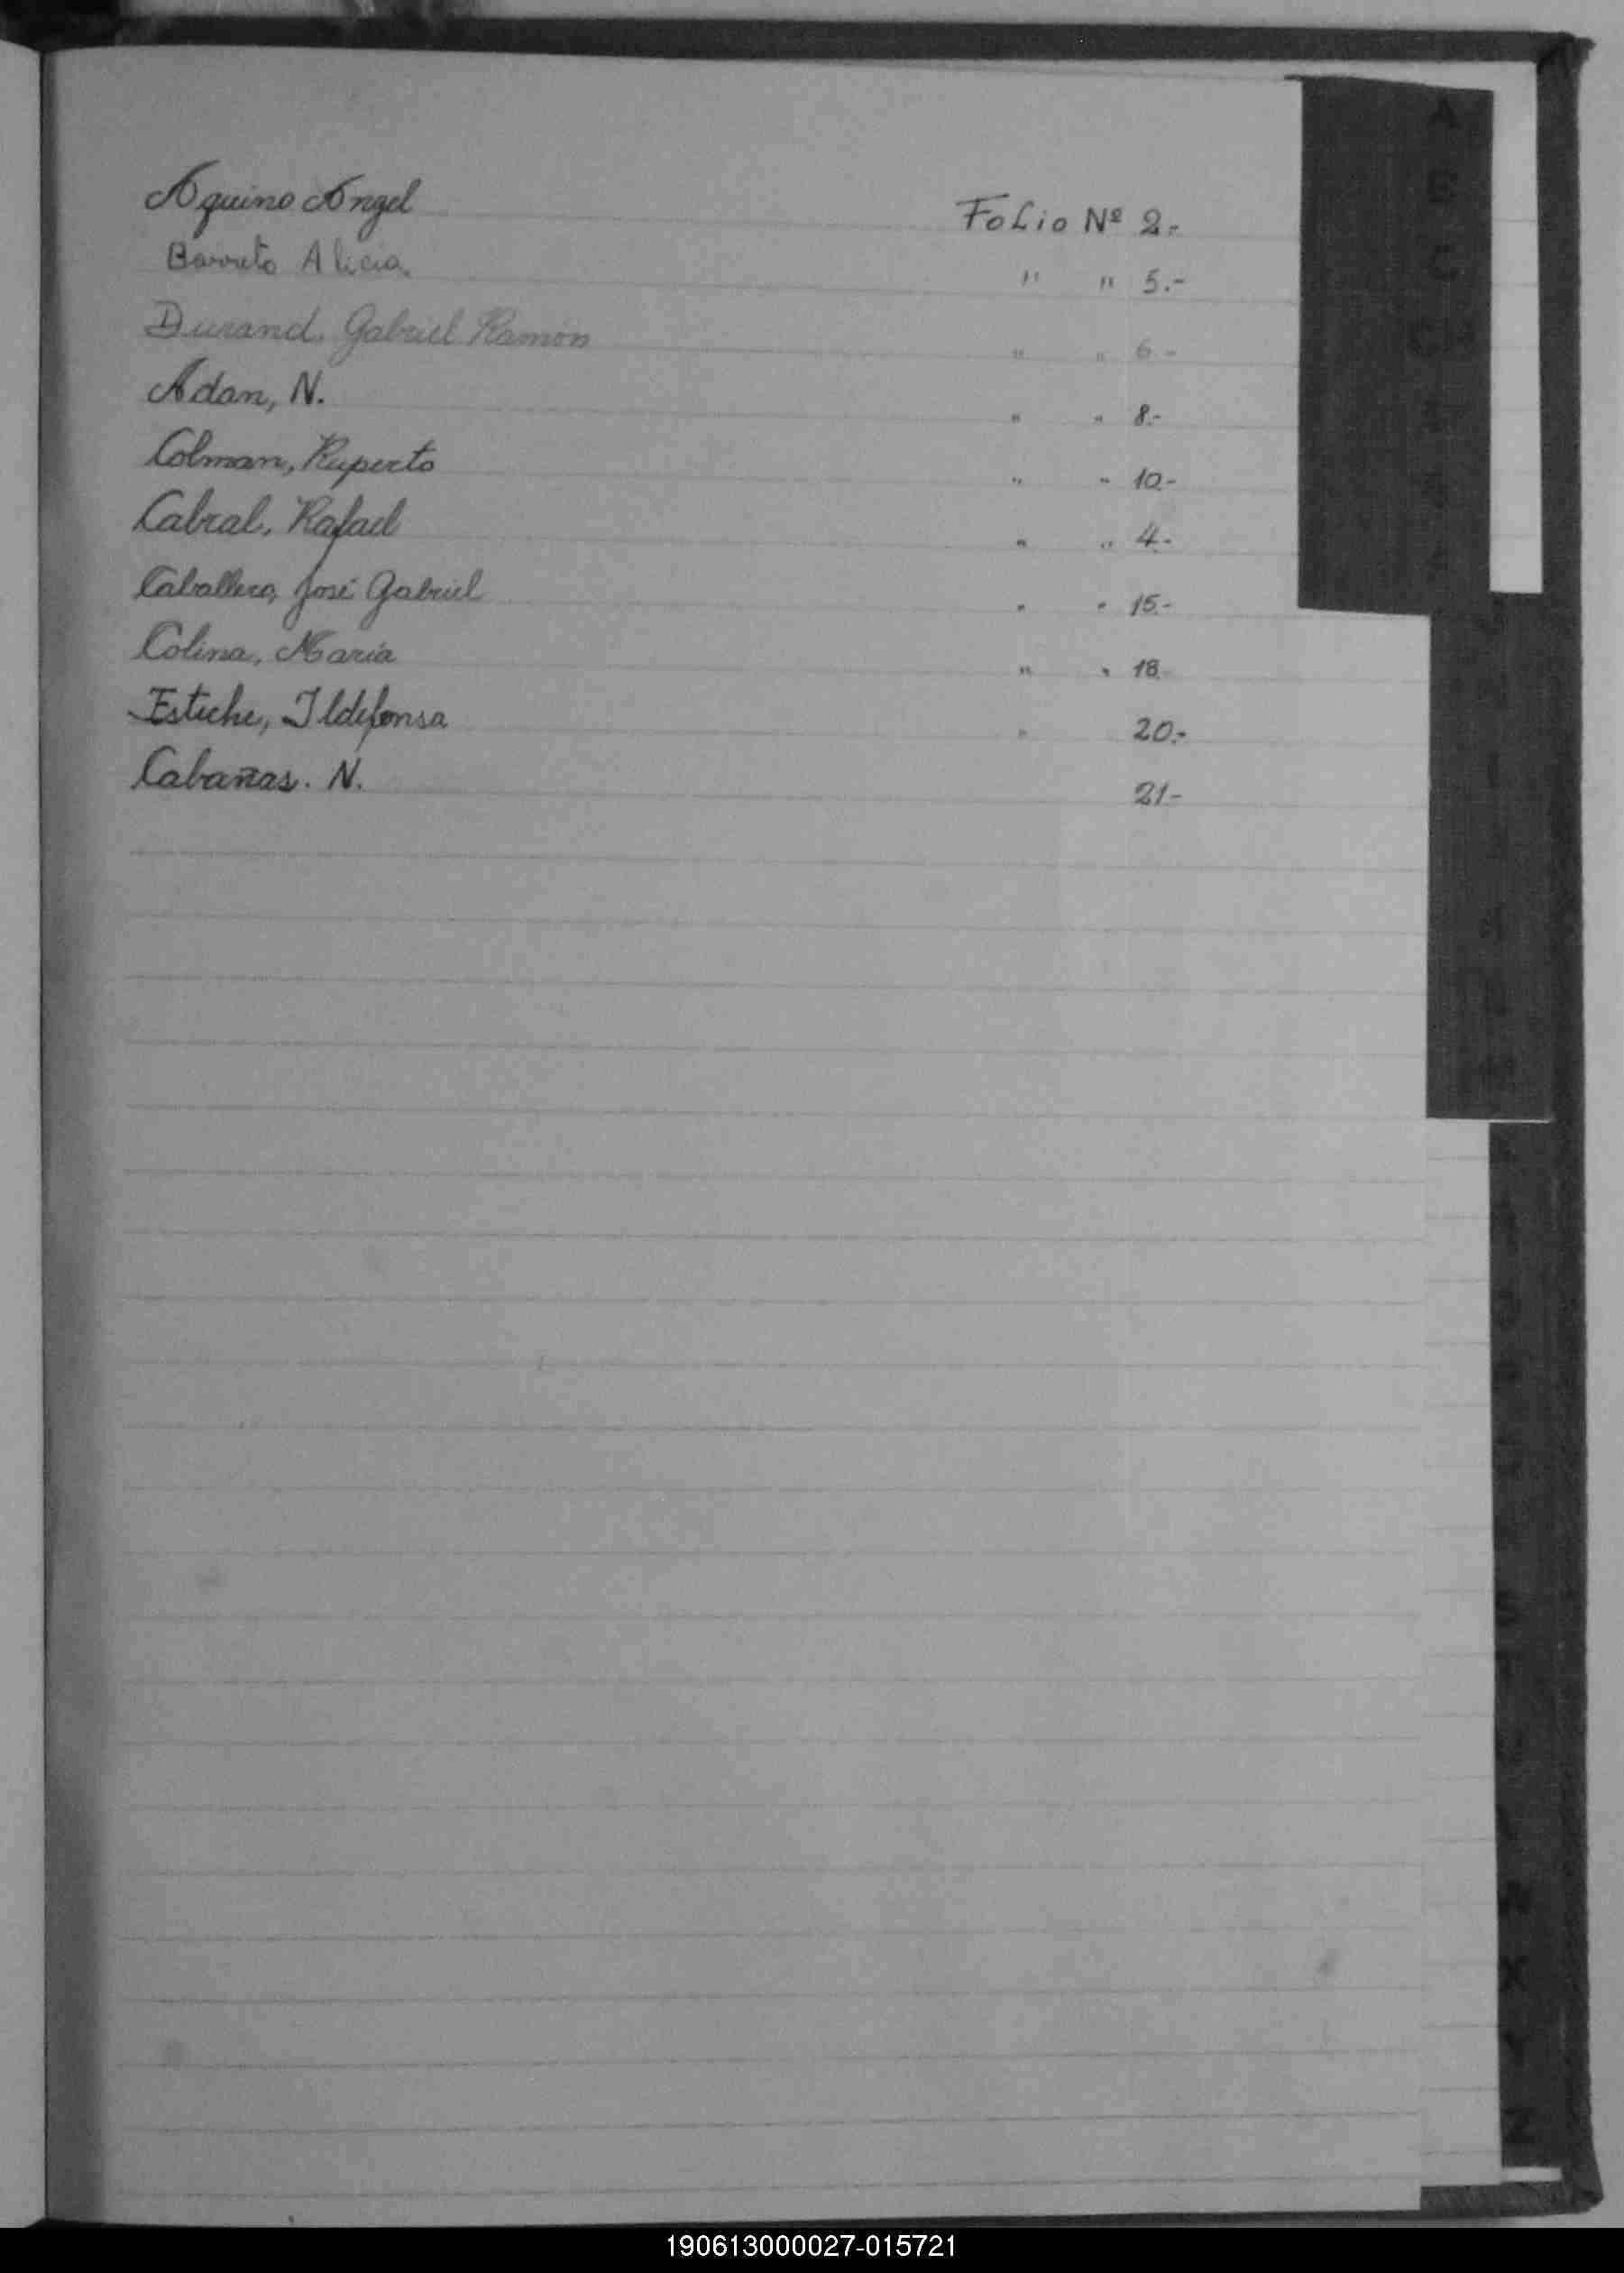 Aquino Angel Folio Nº 2.-
Barreto Alicia. " " 5.-
Durand, Gabriel Ramón " " 6.-
Adan, N. " " 8.-
Colman, Ruperto " " 10.-
Cabral, Rafael " " 4.-
Caballero, José Gabriel " " 15.-
Colina, María " " 18.-
Esteche, Ildefonsa " 20.-
Cabañas. N. 21-
A
B
C
CH
S
X
Z
190613000027-015721